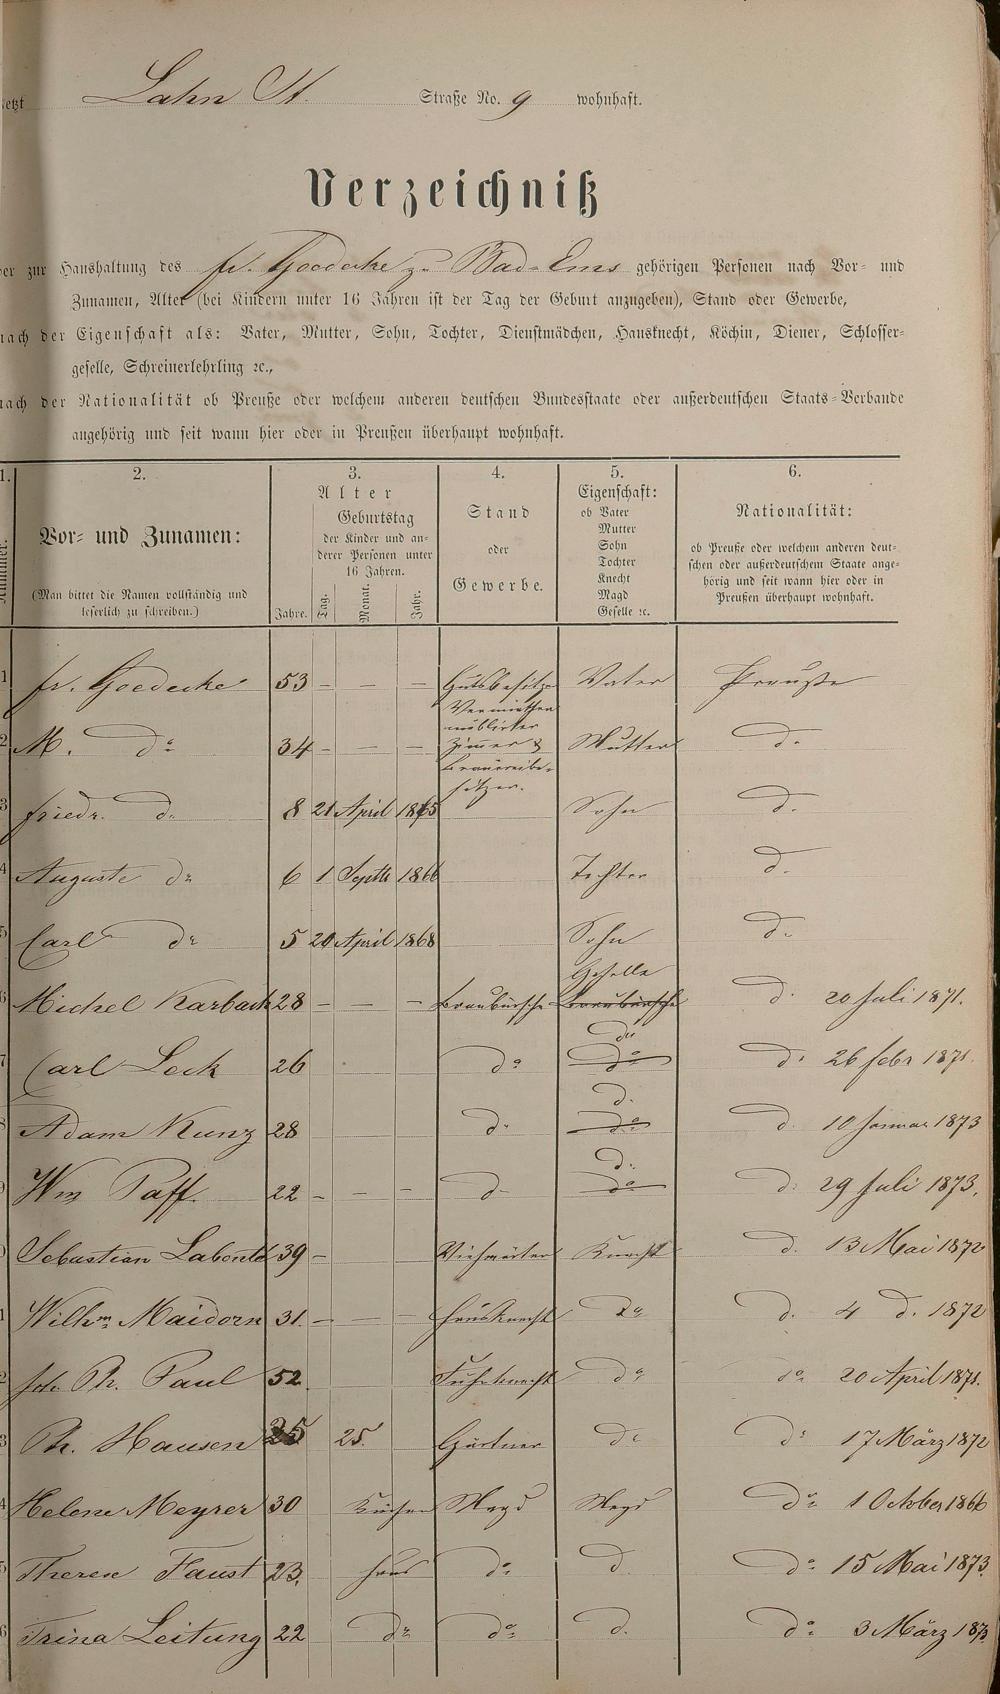 etzt Lahn St. Straße No. 9 wohnhaft.
Verzeichniß
er zur Haushaltung des fr. Goedecke zu Bad-Ems gehörigen Personen nach Vor- und
Zunamen, Alter (bei Kindern unter 16 Jahren ist der Tag der Geburt anzugeben), Stand oder Gewerbe,
nach der Eigenschaft als: Vater, Mutter, Sohn, Tochter, Dienstmädchen, Hausknecht, Köchin, Diener, Schlosser-
geselle, Schreinerlehrling ꝛc.,
nach der Nationalität ob Preuße oder welchem anderen deutschen Bundesstaate oder außerdeutschen Staats-Verbande
angehörig und seit wann hier oder in Preußen überhaupt wohnhaft.
1. 2. 3. 4. 5. 6.
Nummer.
Vor- und Zunamen:
(Man bittet die Namen vollständig und
leserlich zu schreiben.)
Alter
Jahre.
Geburtstag
der Kinder und an-
derer Personen unter
16 Jahren.
Tag. Monat. Jahr.
Stand
oder
Gewerbe.
Eigenschaft:
ob Vater
Mutter
Sohn
Tochter
Knecht
Magd
Geselle ꝛc.
Nationalität:
ob Preuße oder welchem anderen deut-
schen oder außerdeutschem Staate ange-
hörig und seit wann hier oder in
Preußen überhaupt wohnhaft.
1 fr. Goedecke 53 – – – Gutsbesitzer Vater Preuße
Vermiether
möblirter
2 M. do 34 – – – Zimmer & Mutter do
Brauereibe-
sitzer.
3 Friedr. do 8 21 April 1865 Sohn do
4 Auguste do 6 1 Septb 1866 Tochter do
5 Carl do 5 20 April 1868 Sohn do
Geselle
6 Michel Karbach 28 – – – Braubursche Braubursche do 20 Juli 1871.
do
7 Carl Leck 26 do do do 26 febr 1871.
do
8 Adam Kunz 28 do do do 10 Januar 1873
do
9 Wm Paff. 22 – – – do do do 29 Juli 1873.
Sebastian Labonte 39 – Viehwärter Knecht do 13 Mai 1872
1 Wilhm Maidorn 31. – – – Hausknecht do do 4 do 1872
2 Joh. Ph. Paul 52 Fuhrknecht do do 20 April 1871.
3 Ph. Hausen 25 25. Gärtner do do 17 März 1872
4 Helene Meyrer 30 Küchen Magd Magd do 1 October 1866
5 Theren Faust 23. Haus do do do 15 Mai 1873.
6 Trina Leitung 22 do do do do 3 März 1873